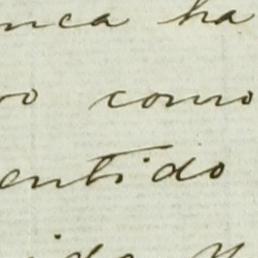 nca ha
o como
entido
ida y